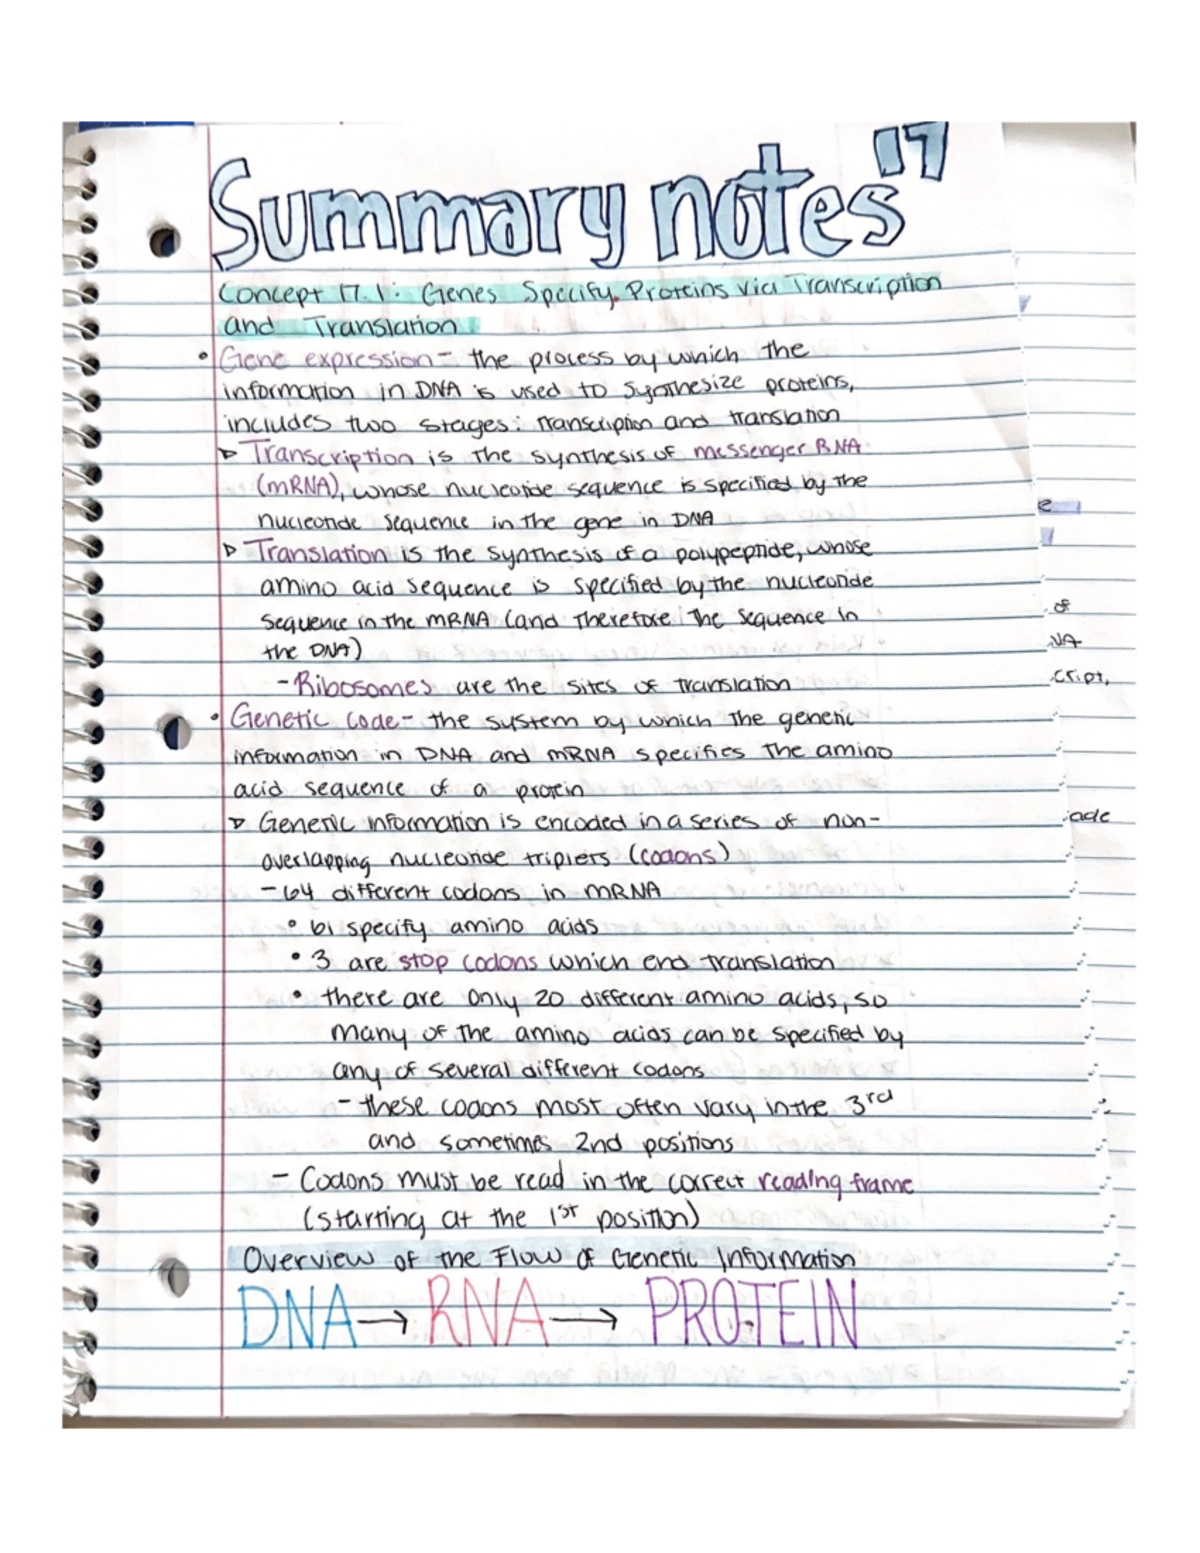 Summary notes 17
Concept 17.1: Genes Specify Proteins via Transcription
and Translation
• Gene expression - the process by which the
information in DNA is used to synthesize proteins,
includes two stages: transcription and translation
▷ Transcription is the synthesis of messenger RNA
(mRNA), whose nucleotide sequence is specified by the
nucleotide sequence in the gene in DNA
▷ Translation is the synthesis of a polypeptide, whose
amino acid sequence is specified by the nucleotide
sequence in the mRNA (and therefore the sequence in
the DNA)
- Ribosomes are the sites of translation
• Genetic code - the system by which the genetic
information in DNA and mRNA specifies the amino
acid sequence of a protein
▷ Genetic information is encoded in a series of non-
overlapping nucleotide triplets (codons)
- 64 different codons in mRNA
• 61 specify amino acids
• 3 are stop codons which end translation
• there are only 20 different amino acids, so
many of the amino acids can be specified by
any of several different codons
- these codons most often vary in the 3rd
and sometimes 2nd positions
- Codons must be read in the correct reading frame
(starting at the 1st position)
Overview of the Flow of Genetic Information
DNA → RNA → PROTEIN
e
of
NA
cript,
ade